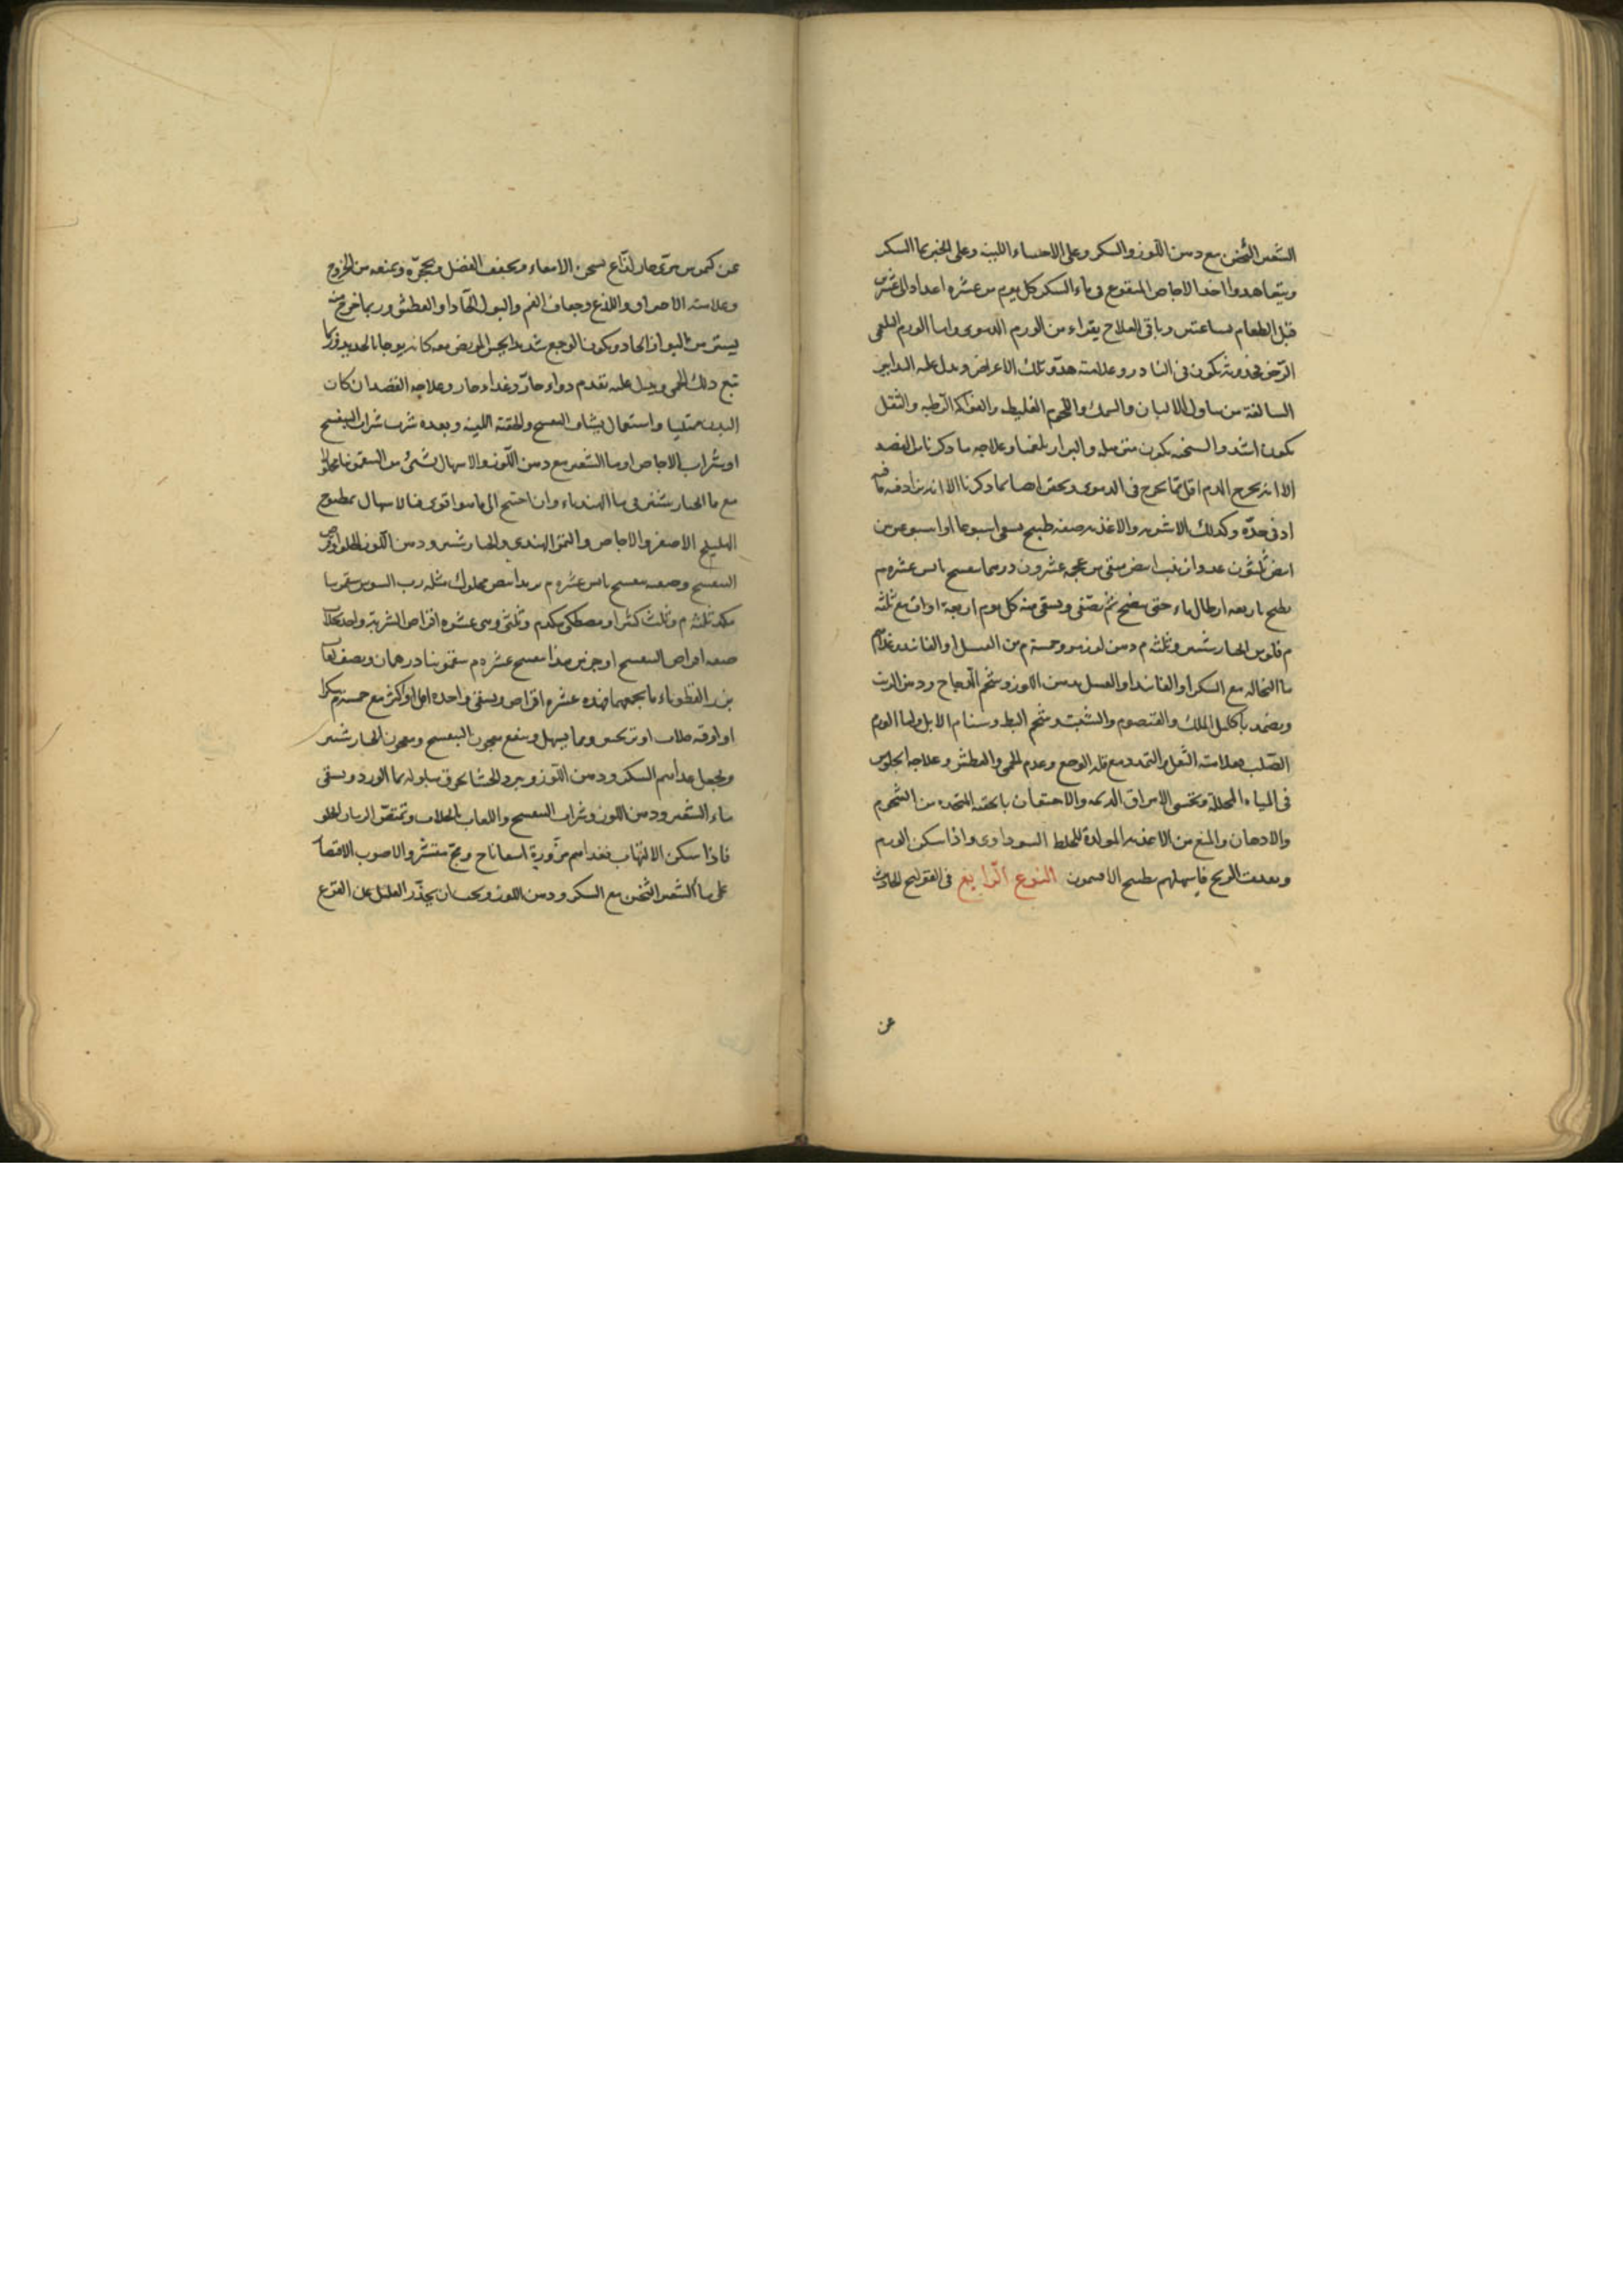 الشعير الثخين مع دهن اللوز والسكر وعلى الاحساء اللينة وعلى الخبز بماء السكر
ويتعاهدوا اخذ الاجاص المنقوع فى ماء السكر كل يوم من عشره اعداد الى عشرين
قبل الطعام بساعتين وباقى العلاج يقراء من الورم الدموى واما الورم البلغمى
الرخو فحدوثه يكون فى النادر وعلامته هدو تلك الاعراض ويدل عليه التدابير
السالفة من تناول الالبان والسمك واللحوم الغليظه والفواكه الرطبه والثقل
يكون اشد والسحنه يكون مترهله والبراز بلغميا وعلاجه ما ذكرنا من الفصد
الا انه يخرج الدم اقل مما يخرج فى الدموى ويحقن ايضا بما ذكرنا الا انه يزاد فيه ما فيه
ادنى حدّة وكذلك الاشربه والاغذيه صفه طبيخ يسقى اسبوعا او اسبوعين تين
ابيض ثلثون عددا زبيب ابيض منقى من عجمه عشرون درهما بنفسج يابس عشره م
يطبخ باربعه ارطال ماء حتى ينضج ثم يصفى ويسقى منه كل يوم اربعة اواق مع ثلثه
م فلوس الخيار شنبر وثلثه م دهن لوز مر وخمسة م من العسل او الفانيد وغذاهم
ماء النخاله مع السكر او الفانيد او العسل بدهن اللوز وشحم الدجاج ودهن الزيت
ويضمد باكليل الملك والقيصوم والشبت وشحم البط وسنام الابل واما الورم
الصلب فعلامته الثقل والتمدد مع قله الوجع وعدم الحمى والعطش وعلاجه الجلوس
فى المياه المحللة وتحسى الامراق الدسمه والاحتقان بالحقنه المتخذه من الشحوم
والادهان والمنع من الاغذيه المولدة للخلط السوداوى واذا سكن الورم
وبعدت الريح فاسهلهم بطبيخ الافتيمون النوع الرابع فى القولنج الحادث
عن
عن كيموس مرّى حار لذّاع يسخن الامعاء ويجفف الفضل ويحجّره ويمنعه من الخروج
وعلامته الاحراق واللذع وجفاف الفم والبول الحاد والعطش وربما خرج منه
يسير من البراز الحاد ويكون الوجع شديدا يحس المريض معه كانه يوجا بالحديد وربما
تبع ذلك الحمى ويدل عليه تقدم دواء حارّ وغداء حار وعلاجه الفصد ان كان
البدن ممتليا واستعمال شياف البنفسج والحقنة اللينه وبعده شرب شراب البنفسج
او شراب الاجاص او ماء الشعير مع دهن اللوز والاسهال بشئ من السقمونيا محلولا
مع ماء الخيار شنبر فى ماء الهندباء وان احتيج الى ما هو اقوى فالاسهال بمطبوخ
الهليلج الاصفر والاجاص والتمر الهندى والخيار شنبر ودهن اللوز الحلو او قرص
البنفسج وصفته بنفسج يابس عشره م تربد ابيض محكوك مثله رب السوس سقمونيا
مكد ثلثه م وثلث كثيرا ومصطكى مكدم وثلثى وهى عشره اقراص الشربة واحد بجلاب
صفه اقراص البنفسج اوجز من هذا بنفسج عشره م سقمونيا درهمان ونصف لعاب
بزر القطوناء ما يجمعهما فهذه عشره اقراص ويسقى واحده اقل او اكثر مع خمسة م سكرا
او اوقه جلاب او ترنجبين ومما يسهل وينفع معجون البنفسج ومعجون الخيار شنبر
ويجعل غداهم السكر ودهن اللوز ويبرد الحشا بخرق مبلوله بماء الورد ويسقى
ماء الشعير ودهن اللوز وشراب البنفسج واللعاب بالجلاب ويمتص الرمان الحلو
فاذا سكن الالتهاب فغداهم مزّورة اسفاناخ ومج منتشر والاصوب الاقتصار
على ماء الشعير الثخين مع السكر ودهن اللوز ويجب ان يحذّر العليل على القرع